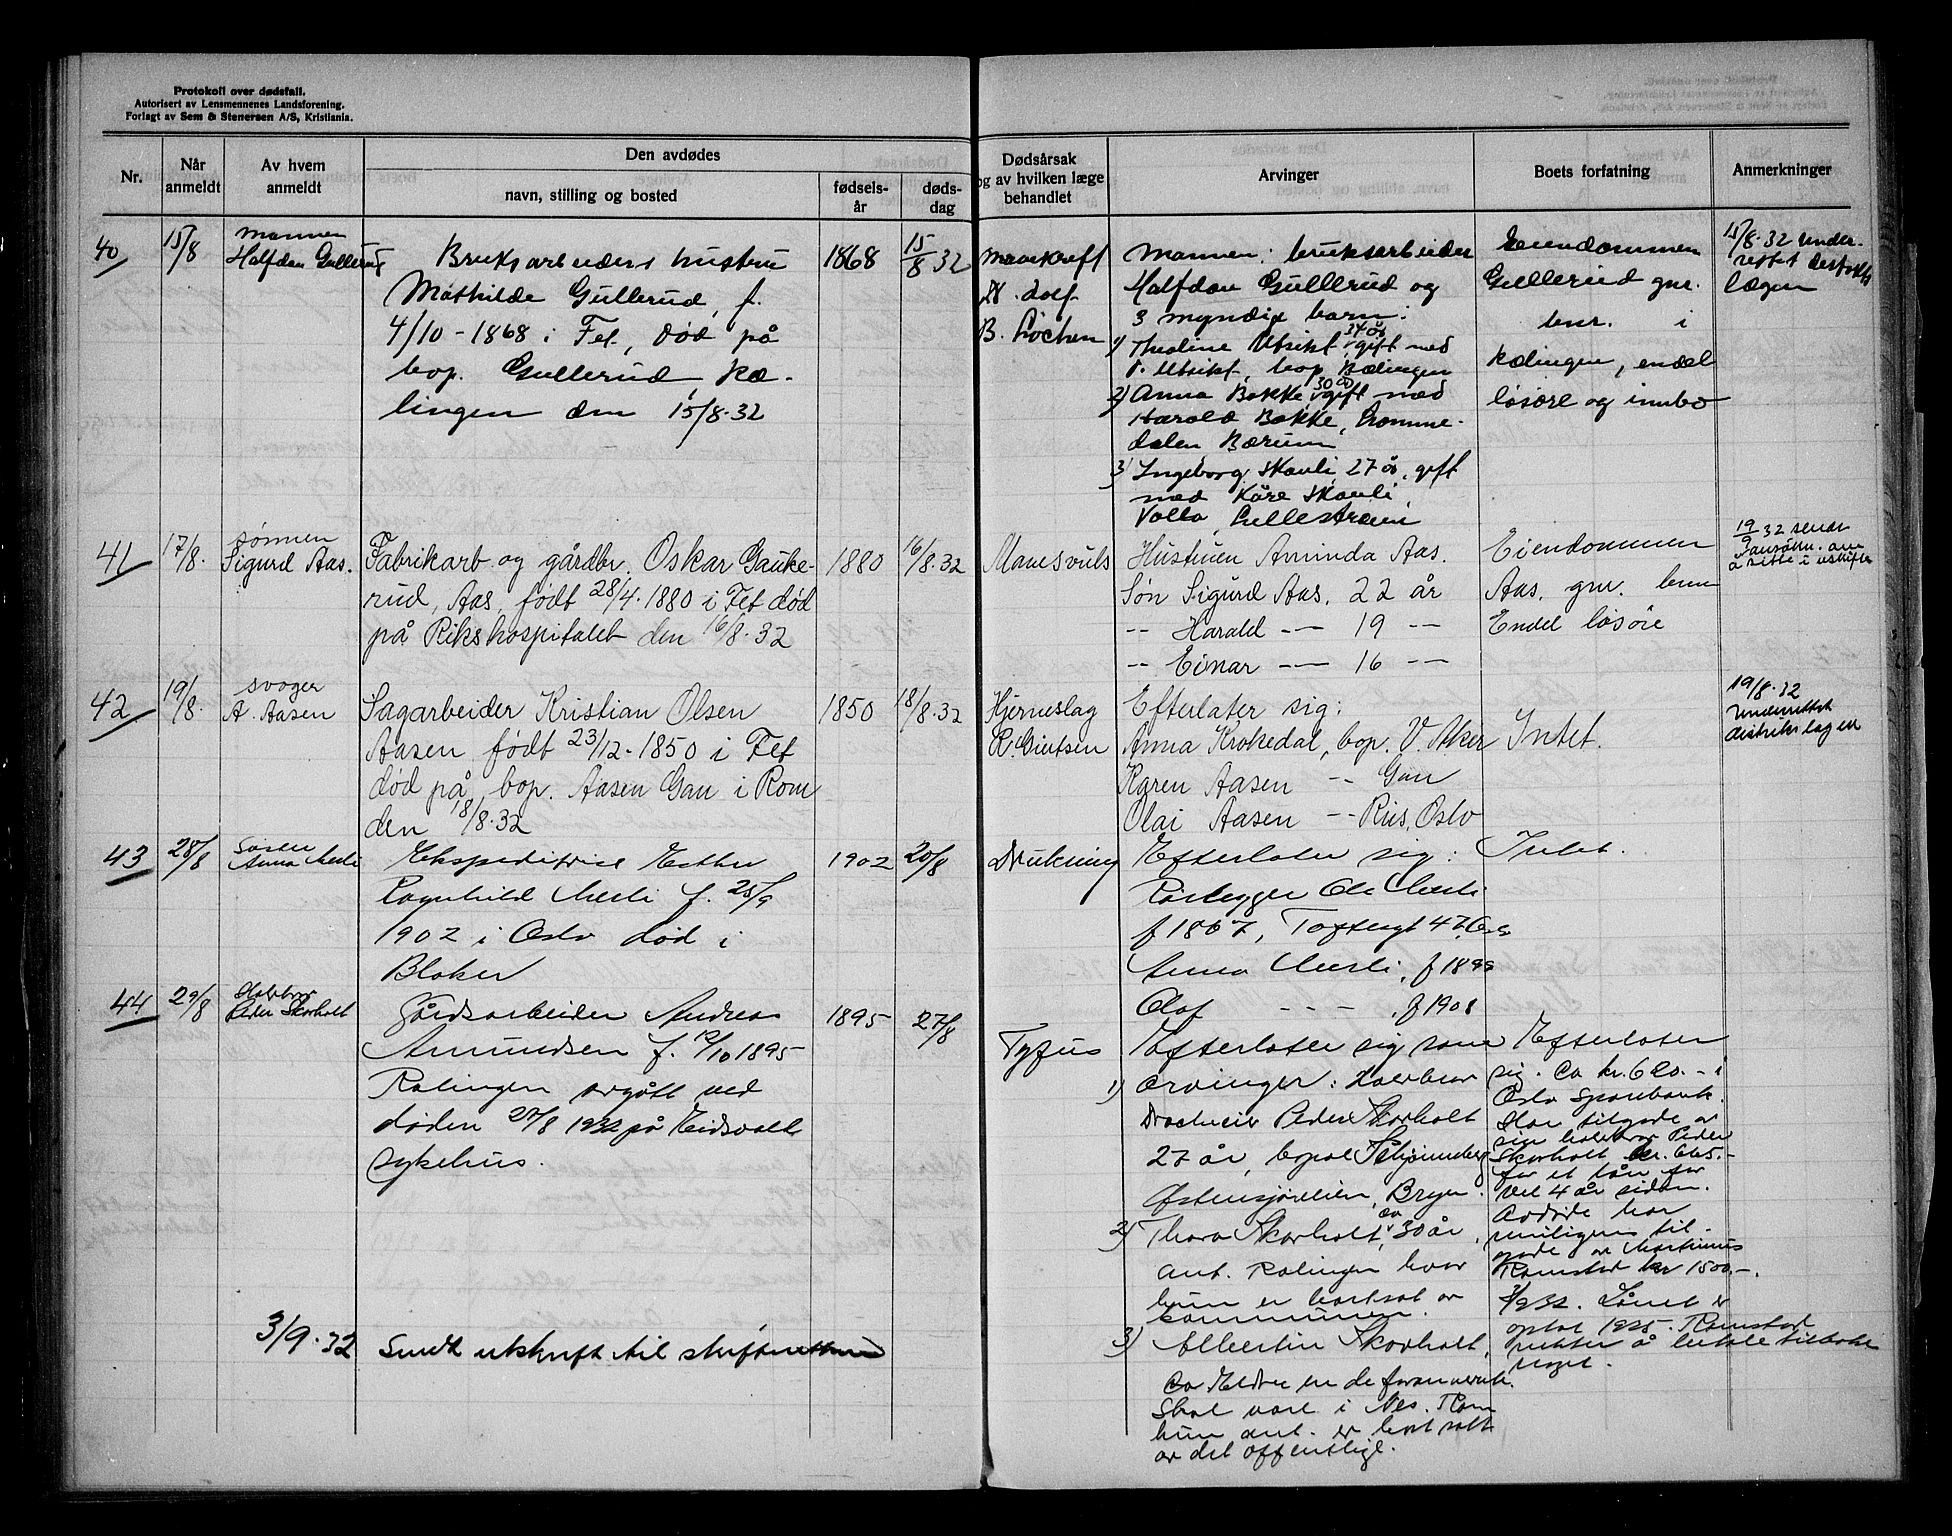 Protokoll over dødsfall.
Autorisert av Lensmennenes Landsforening.
Forlagt av Sem & Stenersen A/S, Kristiania.
Nr.
Når anmeldt
Av hvem anmeldt
Den avdødes
navn, stilling og bosted
fødselsår
dødsdag
Dødsårsak
og av hvilken læge
behandlet
Arvinger
Boets forfatning
Anmerkninger
40
15/8
mannen
Halfdan Gullerud
Bruksarbeiders hustru
Mathilde Gullerud, f.
4/10-1868 i Fet, død på
bop. Gullerud, Ræ-
lingen den 15/8.32
1868
15/8 32
Mavekreft
B. Løchen
Mannen: bruksarbeider
Halfdan Gullerud og
3 myndige barn:
1) Theoline Utsikt, 34 år gift med
Utsikt, bop. Rælingen
2) Anna Bakke, 30 år gift med
Harald Bakke, Lomme-
dalen Bærum
3) Ingeborg Skauli, 27 år, gift
med Kåre Skauli,
Volla, Lillestrøm
Eiendommen
Gullerud gnr.
bnr. i
Rælingen, endel
løsøre og innbo
15/8.32 under-
rettet distrikts
lægen
41
17/8.
sønnen
Sigurd Aas.
Fabrikarb og gårdbr. Oskar Gauke-
rud, Aas, født 28/4.1880 i Fet død
på Rikshospitalet den 16/8.32
1880
16/8.32
Mavesvuls
Hustruen Aminda Aas.
Søn Sigurd Aas. 22 år
-- Harald -- 19 --
-- Einar -- 16 --
Eiendommen
Aas. gnr. bnr
Endel løsøre
19/9 32 sendt
å sitte i uskifte
42
19/8.
svoger
A. Aasen
Sagarbeider Kristian Olsen
Aasen født 23/12-1850 i Fet
død på bop. Aasen Gan i Rom
den 18/8.32
1850
18/8.32
Hjerneslag
R. Giertsen
Efterlater sig:
Anna Krokedal, bop. V. Aker
Karen Aasen -- Gan
Olai Aasen -- Riis, Oslo
Intet.
19/8.32
underrettet
distriktslægen
43
28/8
Søster
Anna Mæsli
Ekspeditrise Esther
Ragnhild Mæsli f. 25/9
1902 i Oslo død i
Blaker
1902
20/8
Drukning
Efterlater sig:
Rørlegger Ole Mæsli
f 1867, Toftesgt 47, Oslo
Anna Mæsli, f 189
Olaf - - - , f 1908
Intet.
44
29/8
Halvbror
Peder Skorholt
Gårdsarbeider Andreas
Amundsen f. /10 1895
Rælingen avgått ved
døden 27/8 1932 på Eidsvoll
sykehus.
1895
27/8
Tyfus
Efterlater sig som
arvinger:
1) Halvbror
Peder Skorholt
27 år, bopel
Østensjøveien, Bryn.
2) Thora Skorholt, ca 30 år,
ant. Rælingen hvor
hun er bortsat av
kommunen.
3) Albertin Skorholt,
ca Eldre en de forannevnte.
Skal være i Nes. Rom
hun ant. er bortsatt
av det offentlige.
Efterlater
sig. ca kr. 620.- i
Oslo Sparebank.
Har tilgode av
sin halvbror Peder
Skorholt kr. 665.-
for et lån for
vel 4 år siden.
Avdøde har
muligens til-
gode av Martinius
Ramstad kr 1500.-.
3/9 32. Lånet er
optat 1925. Ramstad
nekter å betale tilbake
noget.
3/9.32
Sendt utskrift til skifteretten